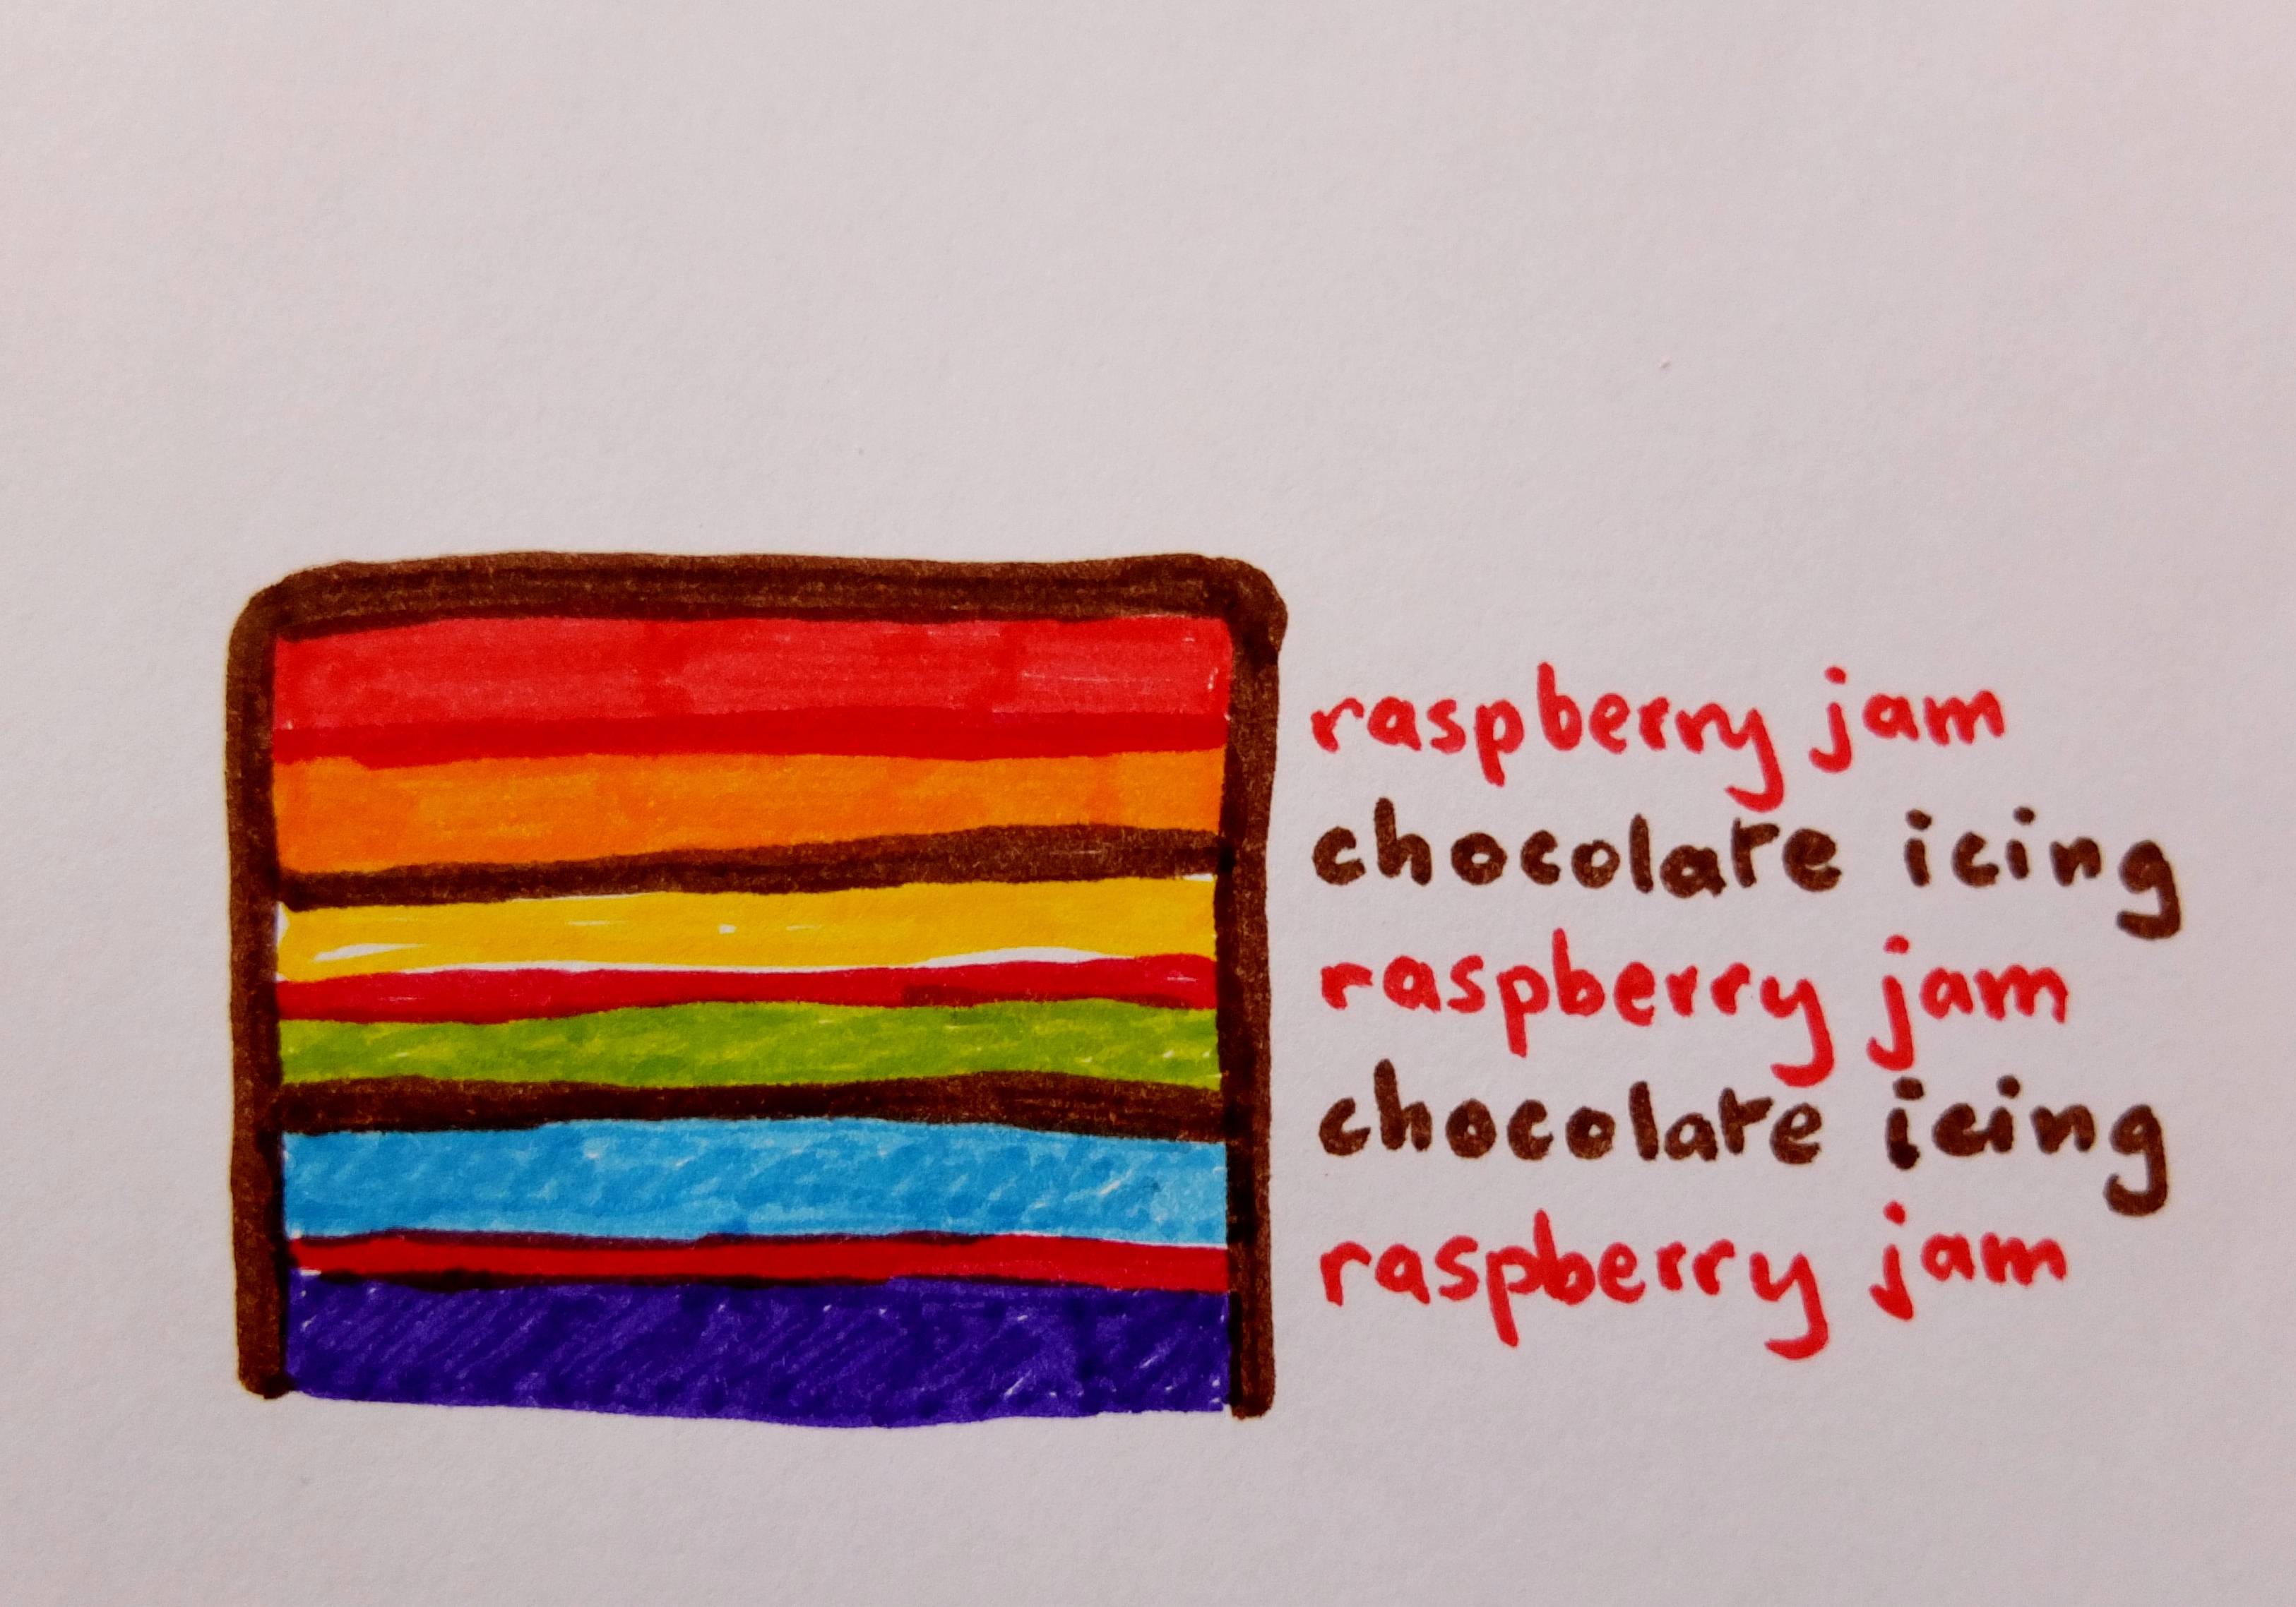 raspberry jam
chocolate icing
raspberry jam
chocolate icing
raspberry jam